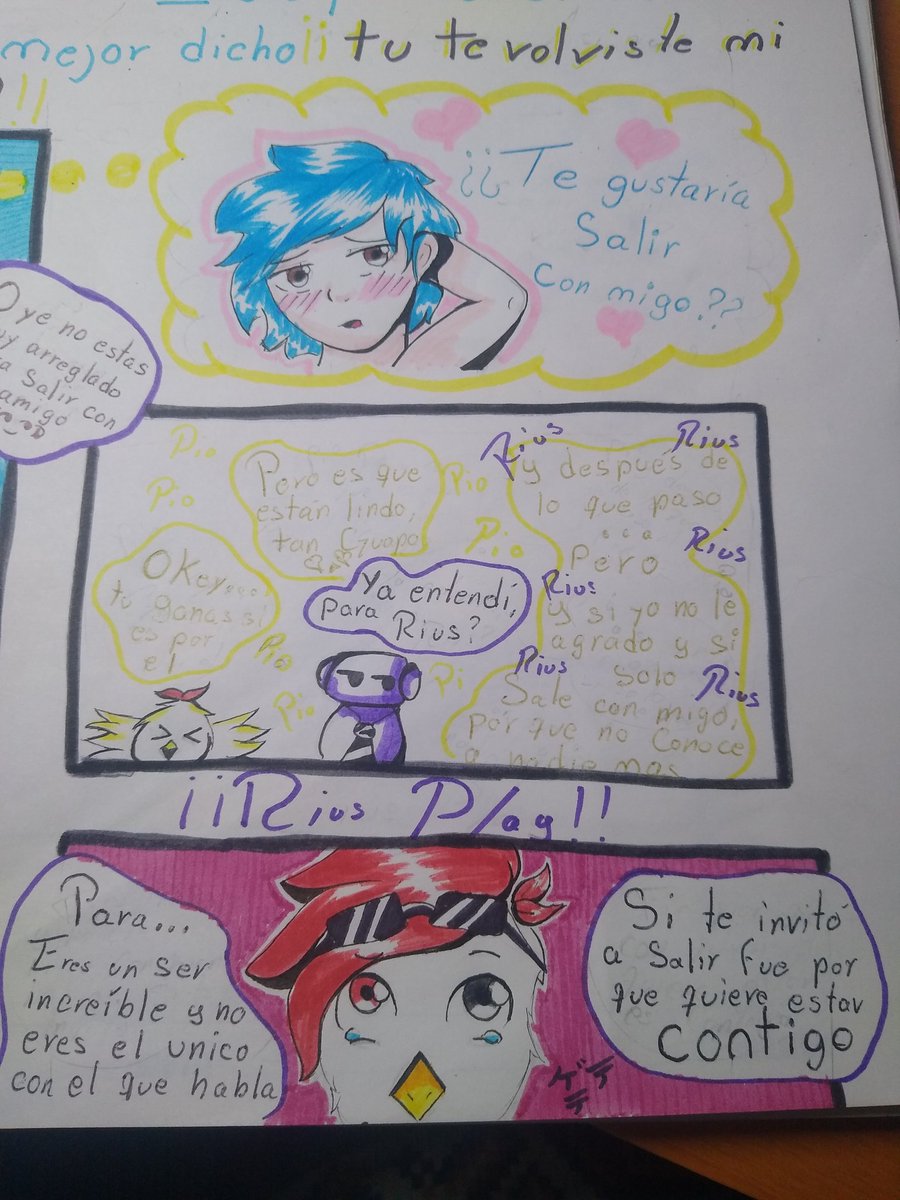 mejor dicho¡¡ tu te volviste mi
!!
¡¡Te
gustaría
Salir
Con migo??
Oye no estas
arreglado
Salir con
amigo
Pio
Pio
Pero es que
están lindo,
tan Guapo
Pio
Pio
Rius
Rius
y después de
lo que paso
...
Pero
Rius
Rius
y si yo no le
agrado y si
Solo
Rius
Rius
Sale con migo,
por que no Conoce
a nadie mas
Okey....
tu ganas si
es por
el
Pio
Pio
Pi
Ya entendí,
para
Rius?
¡¡Rius Plag!!
Para...
Eres un ser
increíble y no
eres el unico
con el que habla
Si te invitó
a Salir fue por
que quiere estar
contigo